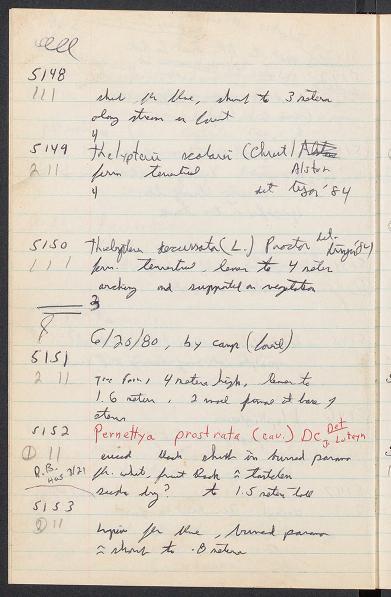 5148
111 shrub, fls blue, shrub to 3 meters
along stream in forest
4
5149 Thelypteris scolarii (Christ) Alston
2 11 fern terrestrial Alston
4 det '84
5150 Thelypteris decussata (L.) Proctor det.
111 fern. terrestrial, leaves to 4 meter
arching and supported on vegetation
3
8 6/20/80, by camp (Lovil)
5151
2 11 tree fern, 4 meters high, leaves to
1.6 meters, 2 small fronds at base of
stem
5152 Pernettya prostrata (Cav.) DC Det J. Luteyn
1 11 ericad black shrub in burned paramo
R.B. fls. white, fruit black
Has 2/21 dry? to 1.5 meters tall
5153
2 11 lupin fls blue, burned paramo
= shrub to .8 meters